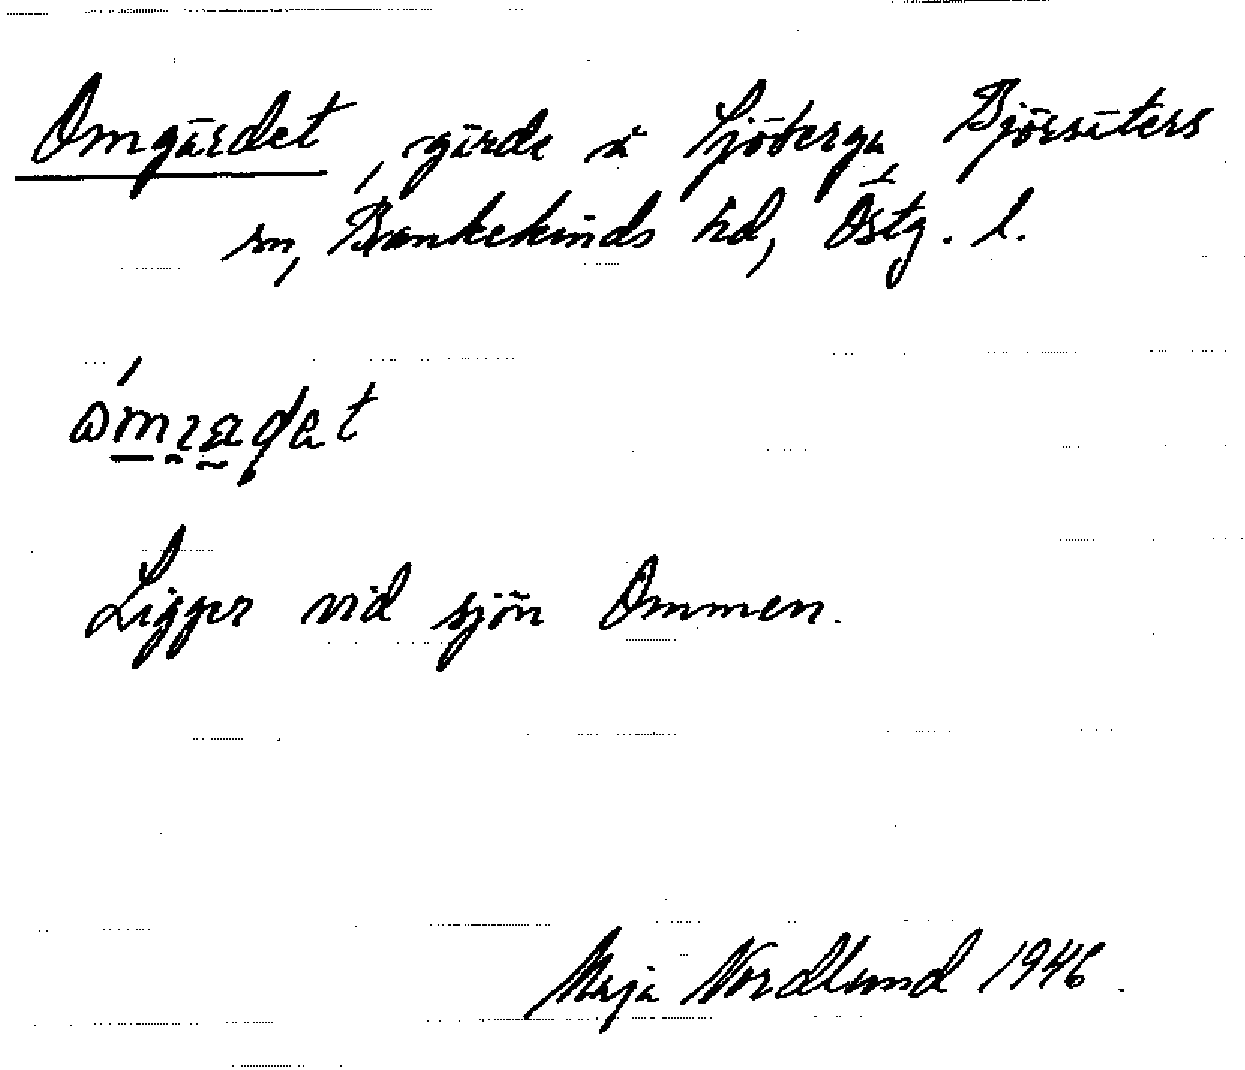 Omgärdet, gärde å Sjöberga, Björsäters
sn, Bankekinds hd, Östg. l.
Ligger vid sjön Ommen.
Maja Nordlund 1946.